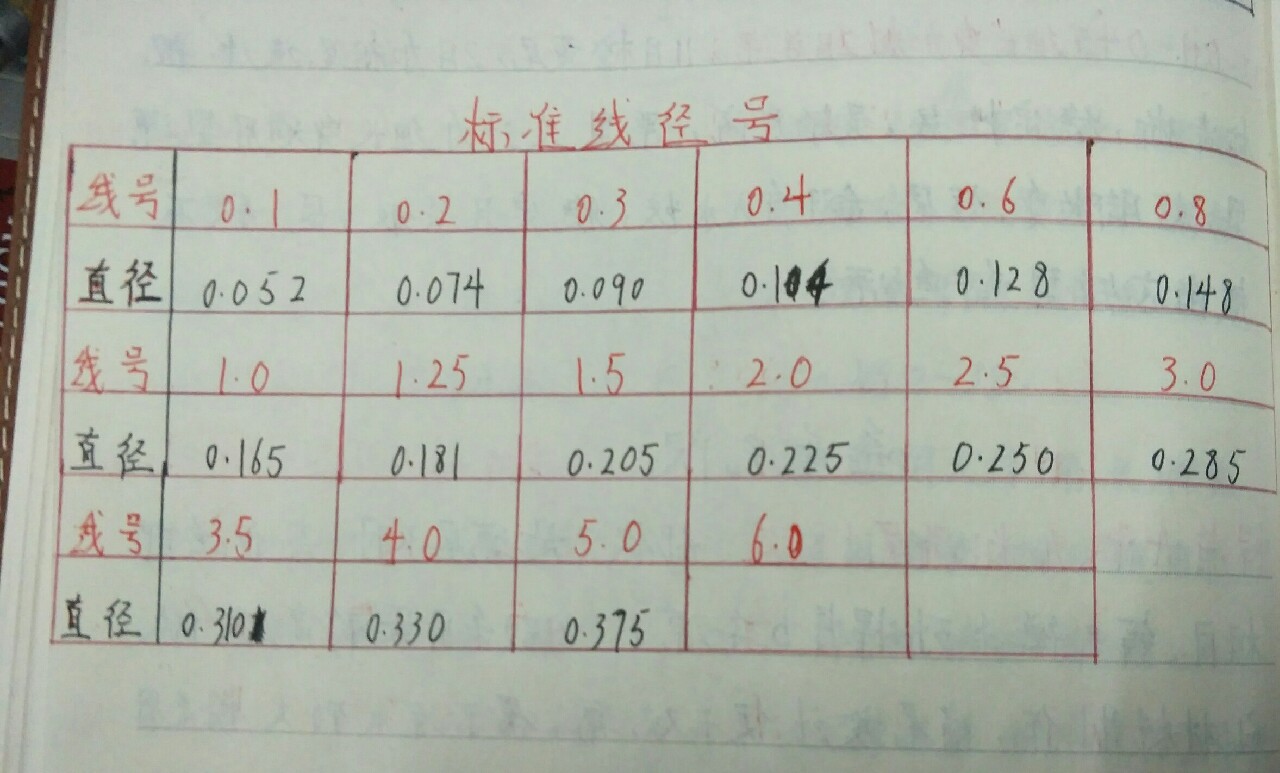 标准线径号
线号 0.1 0.2 0.3 0.4 0.6 0.8
直径 0.052 0.074 0.090 0.104 0.128 0.148
线号 1.0 1.25 1.5 2.0 2.5 3.0
直径 0.165 0.181 0.205 0.225 0.250 0.285
线号 3.5 4.0 5.0 6.0
直径 0.310 0.330 0.375